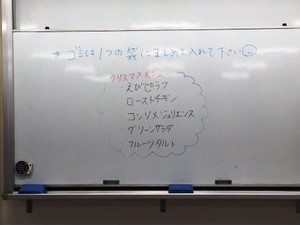 ☆ ゴミは1つの袋にまとめて入れて下さい☺
クリスマス
・えびピラフ
・ローストチキン
・コンソメジュリエンヌ
・グリーンサラダ
・フルーツタルト